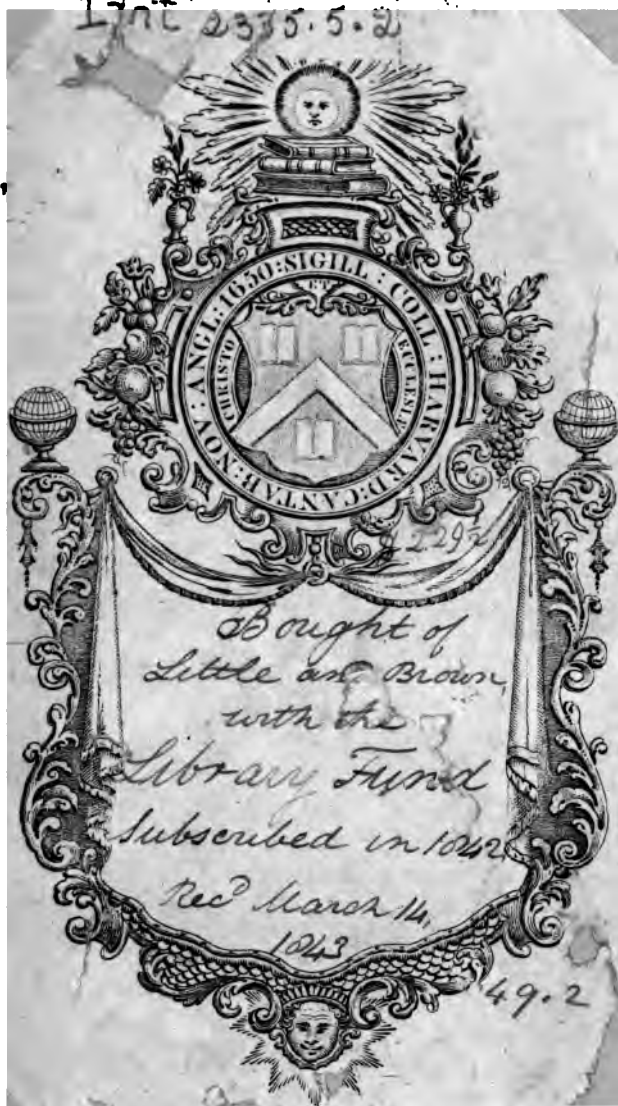 2335.5.2
SIGILL : COLL : HARVARD : CANTAB : NOV : ANGL : 1650 :
CHRISTO ET ECCLESIÆ
Bought of
Little and Brown,
with the
Library Fund
Subscribed in 1842.
Rec^d March 14,
1843
49.2